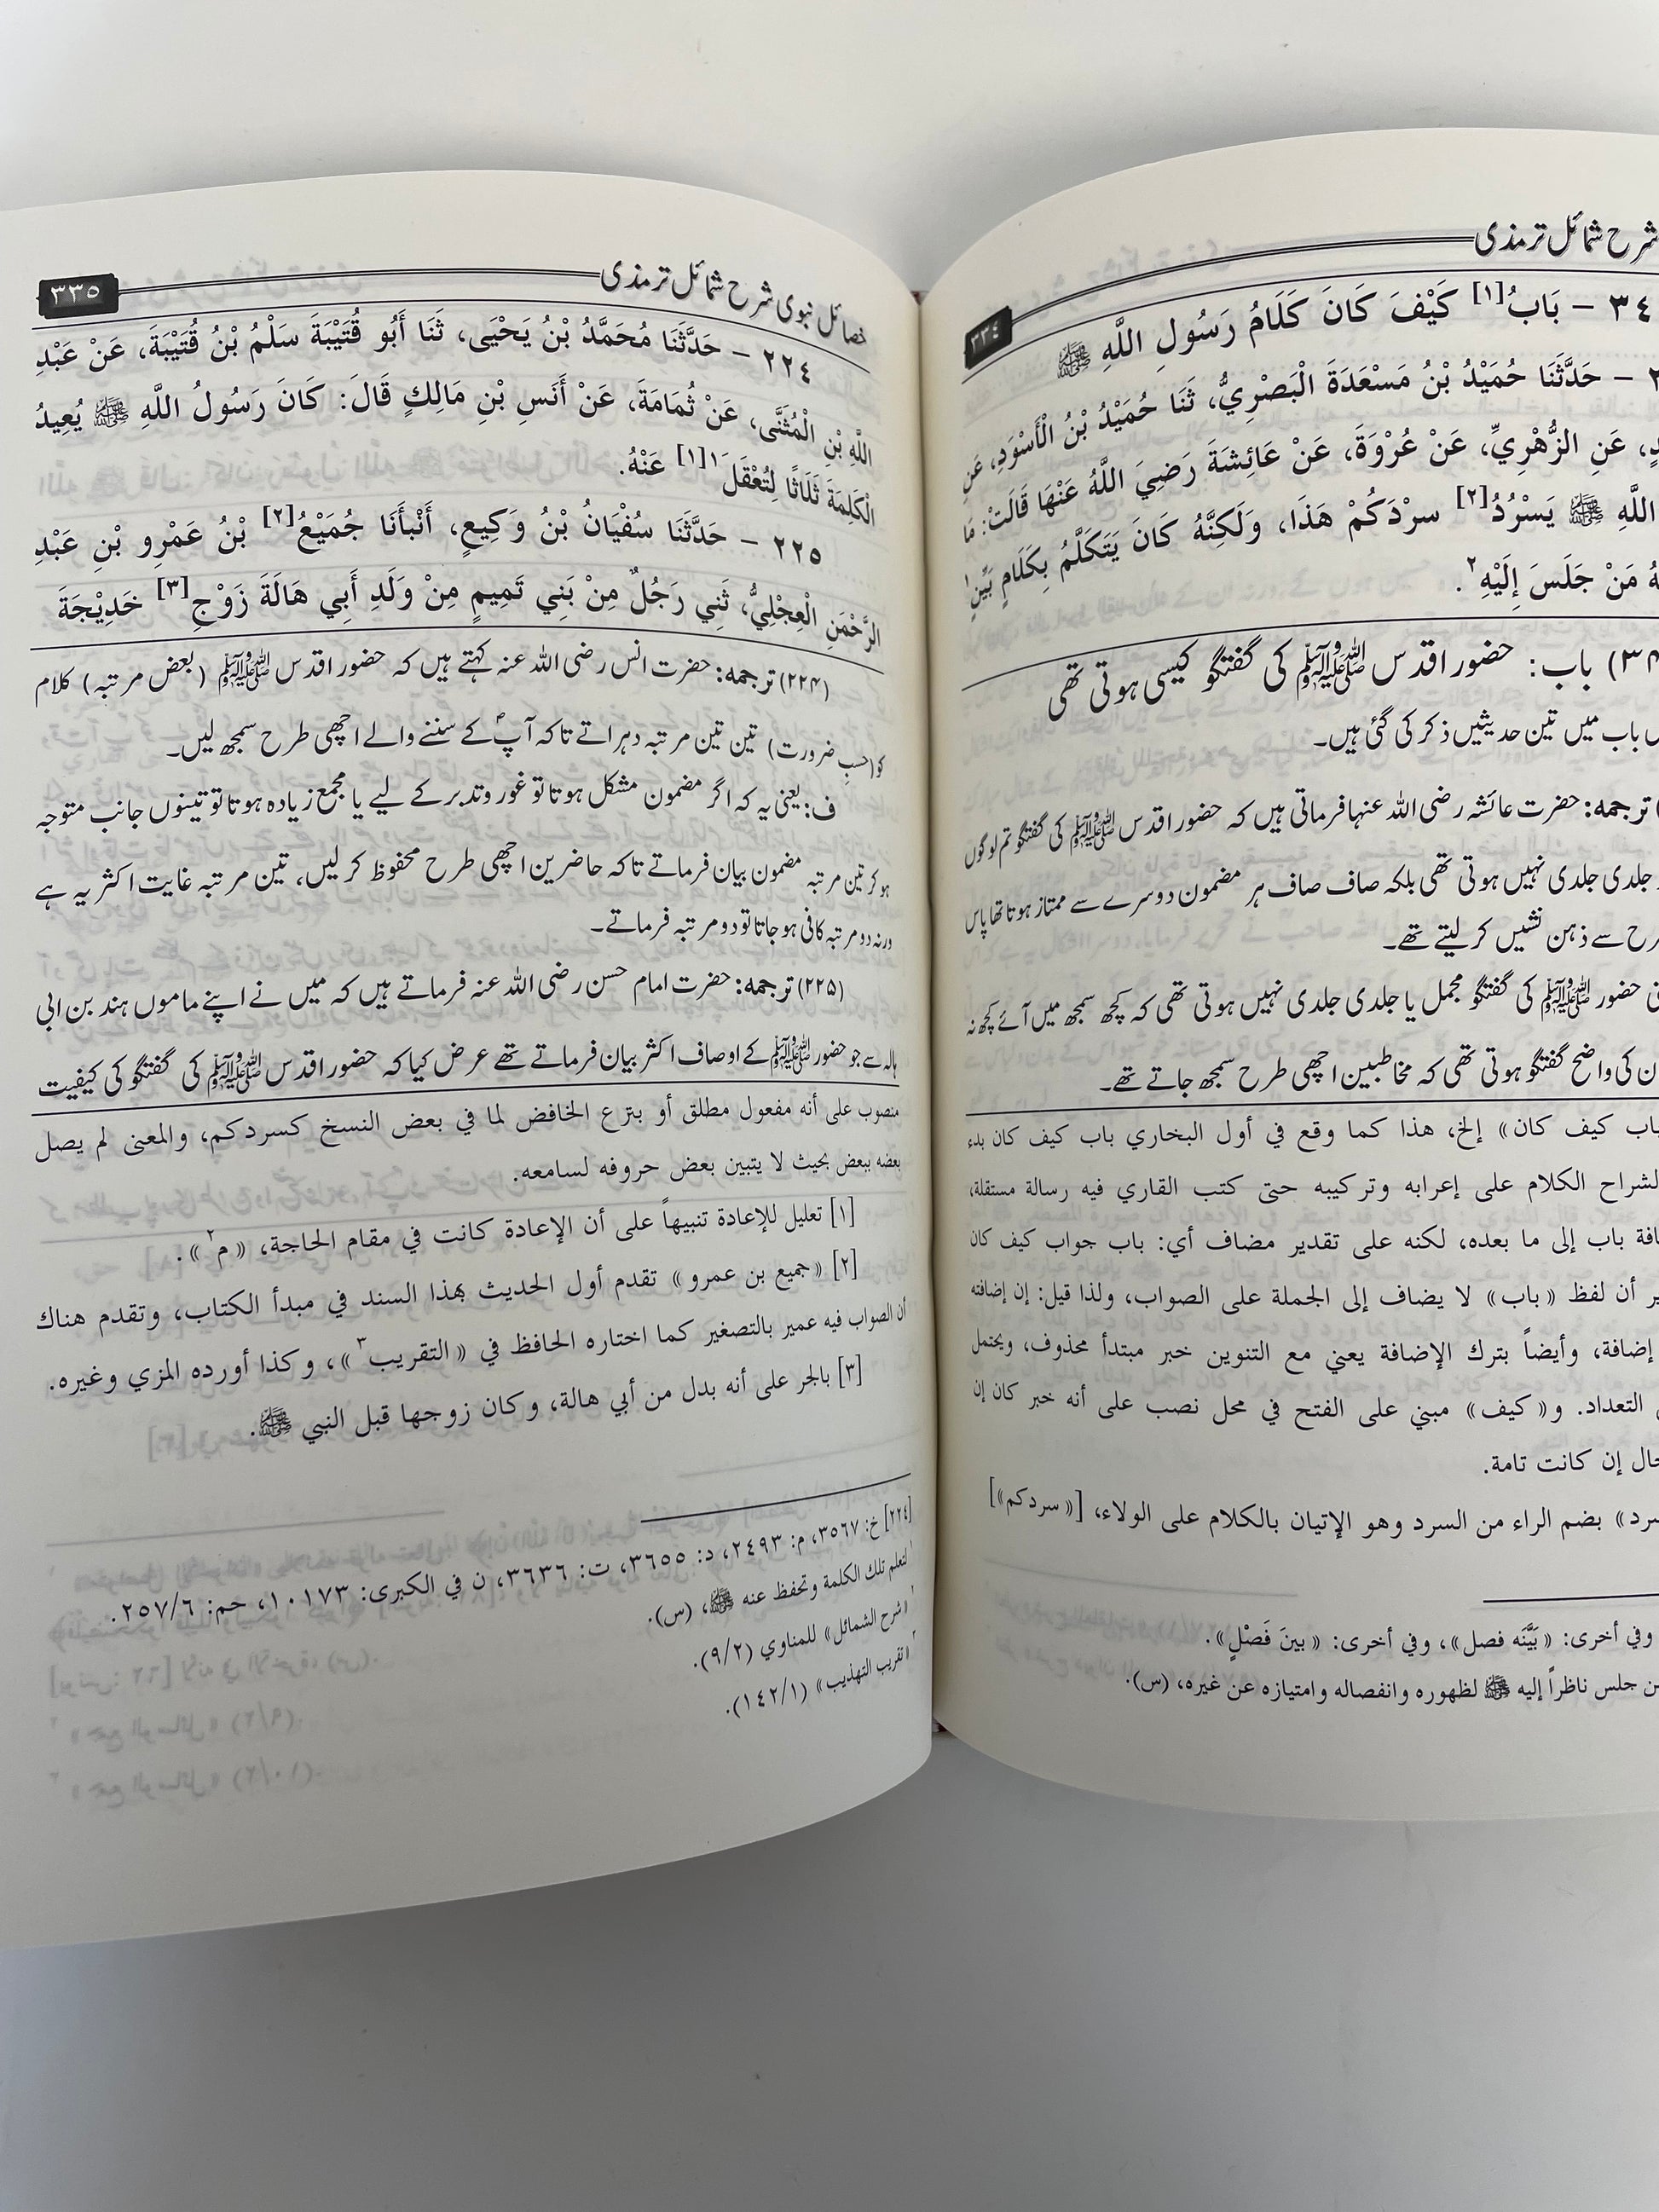 شرح شمائل ترمذی
٣٣٤
٣٤ - بَابُ[١] كَيْفَ كَانَ كَلَامُ رَسُولِ اللَّهِ ﷺ
- حَدَّثَنَا حُمَيْدُ بْنُ مَسْعَدَةَ الْبَصْرِيُّ، ثَنَا حُمَيْدُ بْنُ الْأَسْوَدِ، عَنِ
عَنِ الزُّهْرِيِّ، عَنْ عُرْوَةَ، عَنْ عَائِشَةَ رَضِيَ اللَّهُ عَنْهَا قَالَتْ: مَا
اللَّهِ ﷺ يَسْرُدُ[٢] سرْدَكُمْ هَذَا، وَلَكِنَّهُ كَانَ يَتَكَلَّمُ بِكَلَامٍ بَيِّنٍ١
مَنْ جَلَسَ إِلَيْهِ٢.
باب: حضور اقدس ﷺ کی گفتگو کیسی ہوتی تھی
باب میں تین حدیثیں ذکر کی گئی ہیں۔
ترجمہ: حضرت عائشہ رضی اللہ عنہا فرماتی ہیں کہ حضور اقدس ﷺ کی گفتگو تم لوگوں
جلدی جلدی نہیں ہوتی تھی بلکہ صاف صاف ہر مضمون دوسرے سے ممتاز ہوتا تھا پاس
سے ذہن نشیں کر لیتے تھے۔
حضور ﷺ کی گفتگو مجمل یا جلدی جلدی نہیں ہوتی تھی کہ کچھ سمجھ میں آئے کچھ نہ
کی واضح گفتگو ہوتی تھی کہ مخاطبین اچھی طرح سمجھ جاتے تھے۔
باب كيف كان» إلخ، هذا كما وقع في أول البخاري باب كيف كان بدء
الشراح الكلام على إعرابه وتركيبه حتى كتب القاري فيه رسالة مستقلة،
باب إلى ما بعده، لكنه على تقدير مضاف أي: باب جواب كيف كان
أن لفظ «باب» لا يضاف إلى الجملة على الصواب، ولذا قيل: إن إضافته
إضافة، وأيضاً بترك الإضافة يعني مع التنوين خبر مبتدأ محذوف، ويحتمل
التعداد. و«كيف» مبني على الفتح في محل نصب على أنه خبر كان إن
إن كانت تامة.
بضم الراء من السرد وهو الإتيان بالكلام على الولاء، [«سردكم»]
وفي أخرى: «بَيَّنَه فصل»، وفي أخرى: «بينَ فَصْلٍ».
جلس ناظراً إليه ﷺ لظهوره وانفصاله وامتيازه عن غيره، (س).
خصائل نبوی شرح شمائل ترمذی
٣٣٥
٢٢٤ - حَدَّثَنَا مُحَمَّدُ بْنُ يَحْيَى، ثَنَا أَبُو قُتَيْبَةَ سَلْمُ بْنُ قُتَيْبَةَ، عَنْ عَبْدِ
اللَّهِ بْنِ الْمُثَنَّى، عَنْ ثُمَامَةَ، عَنْ أَنَسِ بْنِ مَالِكٍ قَالَ: كَانَ رَسُولُ اللَّهِ ﷺ يُعِيدُ
الْكَلِمَةَ ثَلَاثًا لِتُعْقَلَ١[١] عَنْهُ.
٢٢٥ - حَدَّثَنَا سُفْيَانُ بْنُ وَكِيعٍ، أَنْبأَنَا جُمَيْعُ[٢] بْنُ عَمْرِو بْنِ عَبْدِ
الرَّحْمَنِ الْعِجْلِيُّ، ثَنِي رَجُلٌ مِنْ بَنِي تَمِيمٍ مِنْ وَلَدِ أَبِي هَالَةَ زَوْجِ[٣] خَدِيْجَةَ
(۲۲۴) ترجمہ: حضرت انس رضی اللہ عنہ کہتے ہیں کہ حضور اقدس ﷺ (بعض مرتبہ) کلام
کو (حسبِ ضرورت) تین تین مرتبہ دہراتے تاکہ آپؐ کے سننے والے اچھی طرح سمجھ لیں۔
ف: یعنی یہ کہ اگر مضمون مشکل ہوتا تو غور و تدبر کے لیے یا مجمع زیادہ ہوتا تو تینوں جانب متوجہ
ہو کر تین مرتبہ مضمون بیان فرماتے تاکہ حاضرین اچھی طرح محفوظ کر لیں، تین مرتبہ غایت اکثر یہ ہے
ورنہ دو مرتبہ کافی ہو جاتا تو دو مرتبہ فرماتے۔
(۲۲۵) ترجمہ: حضرت امام حسن رضی اللہ عنہ فرماتے ہیں کہ میں نے اپنے ماموں ہند بن ابی
ہالہ سے جو حضور ﷺ کے اوصاف اکثر بیان فرماتے تھے عرض کیا کہ حضور اقدس ﷺ کی گفتگو کی کیفیت
منصوب على أنه مفعول مطلق أو بنزع الخافض لما في بعض النسخ كسردكم، والمعنى لم يصل
بعضه ببعض بحيث لا يتبين بعض حروفه لسامعه.
[١] تعليل للإعادة تنبيهاً على أن الإعادة كانت في مقام الحاجة، «م٢».
[٢] «جميع بن عمرو» تقدم أول الحديث بهذا السند في مبدأ الكتاب، وتقدم هناك
أن الصواب فيه عمير بالتصغير كما اختاره الحافظ في «التقريب٣»، وكذا أورده المزي وغيره.
[٣] بالجر على أنه بدل من أبي هالة، وكان زوجها قبل النبي ﷺ.
[٢٢٤] خ: ٣٥٦٧، م: ٢٤٩٣، د: ٣٦٥٥، ت: ٣٦٣٦، ن في الكبرى: ١٠١٧٣، حم: ٢٥٧/٦.
١ لتعلم تلك الكلمة وتحفظ عنه ﷺ، (س).
٢ «شرح الشمائل» للمناوي (٩/٢).
٣ «تقريب التهذيب» (١٤٢/١).